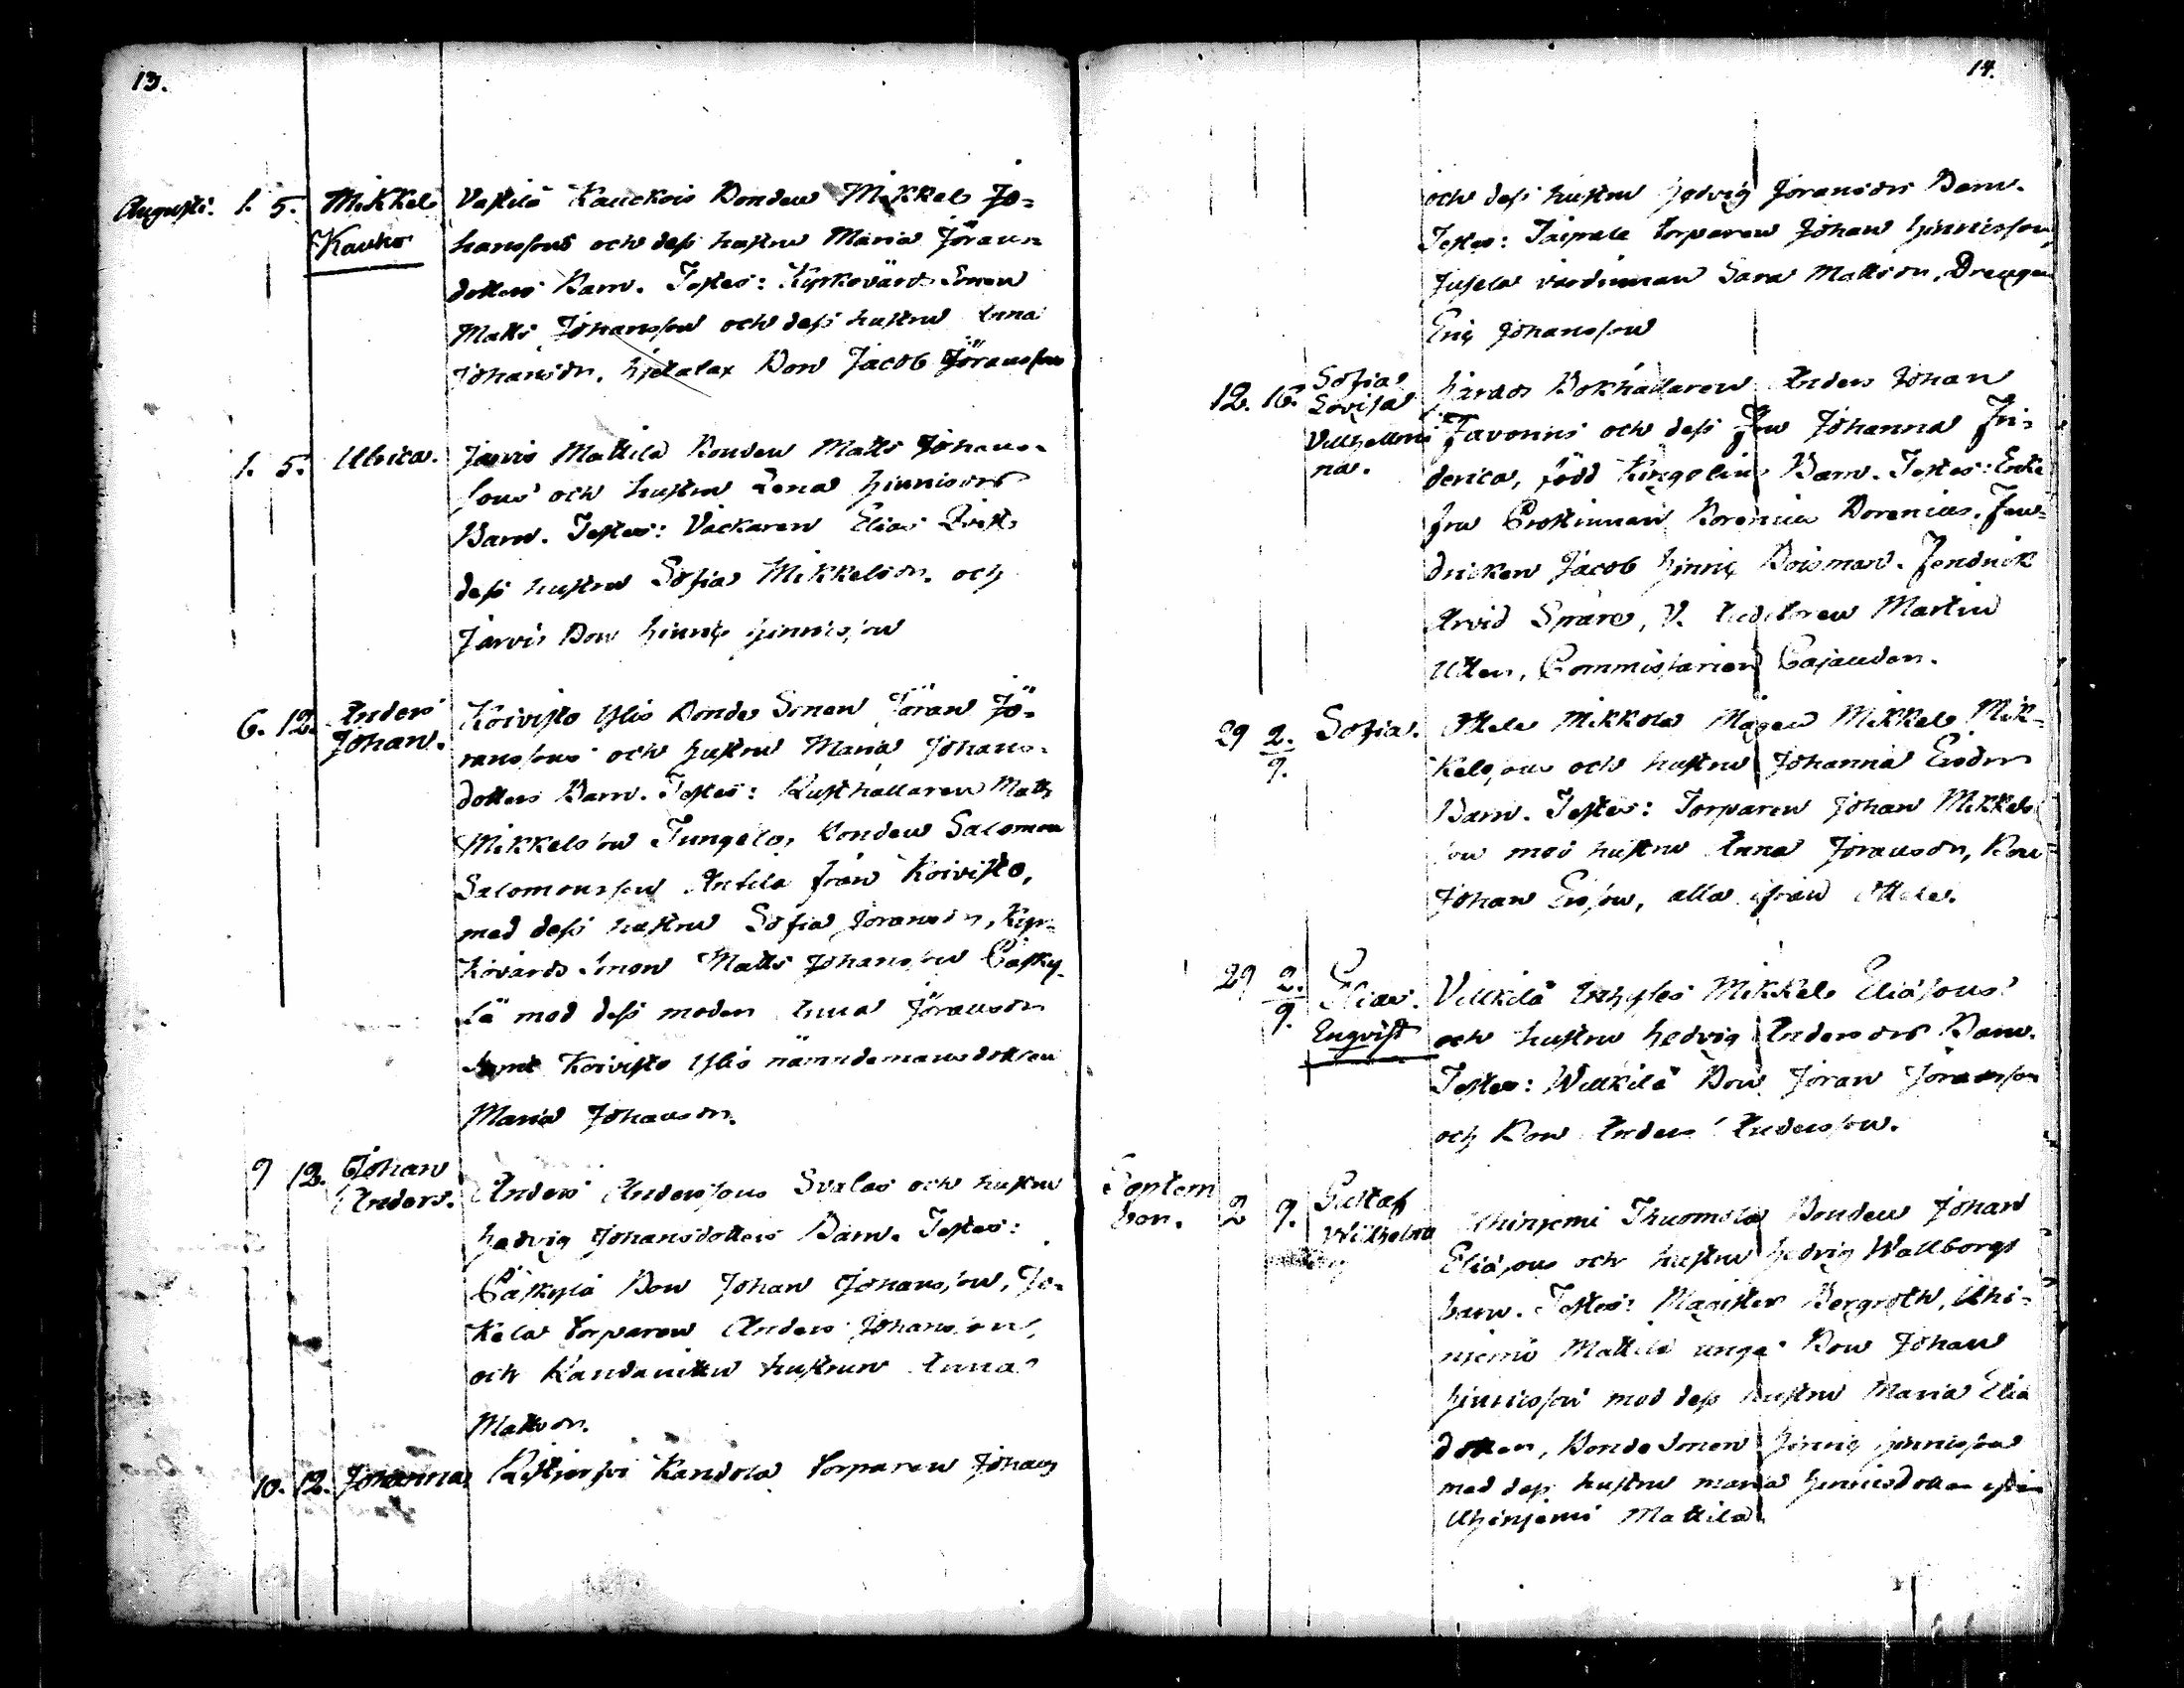 13.
Augusti. 1. 5. Mikkel Vastila Kauckois Bonden Mikkels Jo=
Kauko hanssons och dess hustru Maria Jörans=
dotters Barn. Testes: Kyrkovärds Sonen
Matts Johansson och dess hustru Anna
Johansdr. Hjetalax Bon Jacob Jöransson
1. 5. Ulrica. Jarvis Mattila Bonden Matts Johans=
sons och hustru Lena Hinricsdrs
Barn. Testes: Väckaren Elias Qvist
dess hustru Sofia Mikkelsdr. och
Jarvis Bon Hinric Hinricsson
6. 12. Anders Koivisto Yllis Bonde Sonen Jöran Jö=
Johan. ranssons och hustru Maria Johans=
dotters Barn. Testes: Rusthållaren Matts
Mikkelsson Tungela, Bonden Salomon
Salomonsson Antila från Koivisto,
med dess hustru Sofia Jöransdr, Kyr=
kovärds Sonen Matts Johansson Casky=
lä med dess moder Anna Jöransdr
samt Koivisto Yllis nämndemansdottren
Maria Johansdr.
9 12. Johan Anders Anderssons Svalas och hustru
Anders. Hedvig Johansdotters Barn. Testes:
Cäskylä Bon Johan Johansson, Jo=
kela torparen Anders Johansson,
och Kandanittu hustrun Anna
Mattsdr.
10. 12. Johanna Ristjerfvi Kandola torparen Johans
14.
och dess hustru Hedvig Joransdrs Barn.
Testes: Taipale torparen Johan Hinricsson
Jusela värdinnan Sara Mattsdr, Drengen
Eric Johansson
12. 16. Sofia Härads Bokhållaren Anders Johan
Lovisa
Villhelmi Favorins och dess Fru Johanna Fri=
na. derica, född Kingelins Barn. Testes: Enke
fru Prostinnan Borenius. Fen=
dricken Jacob Hinric Boisman. Fendrick
Arvid Spåre, V. Auditeren Martin
Utter, Commissarien Cajander.
29 2./9. Sofia. Ottele Mikkola Mågen Mikkel Mik=
kelssons och hustru Johanna Ersdrs
Barn. Testes: Torparen Johan Mikkels
son med hustru Anna Joransdr, Bon
Johan Ersson, alla ifrån Ottele.
29 2./9. Elias. Villkilä Inhyses Mikkel Eliassons
Enqvist och hustru Hedvig Andersdrs Barn.
Testes: Willkilä Bon Joran Joransson
och Bon Anders Andersson.
Septem 2 9. Gustaf Uhinjemi Thuomola Bonden Johan
ber. Wilhelm Eliassons och hustru Hedvig Wallborgs
barn. Testes: Magister Bergroth, Uhi=
njemi Mattila unga Bon Johan
Hinricsson med dess hustru Maria Elia
dotter, Bonde Sonen Hinric Hinricsson
med dess hustru Maria Hinricsdotter ifrån
Uhinjemi Mattila